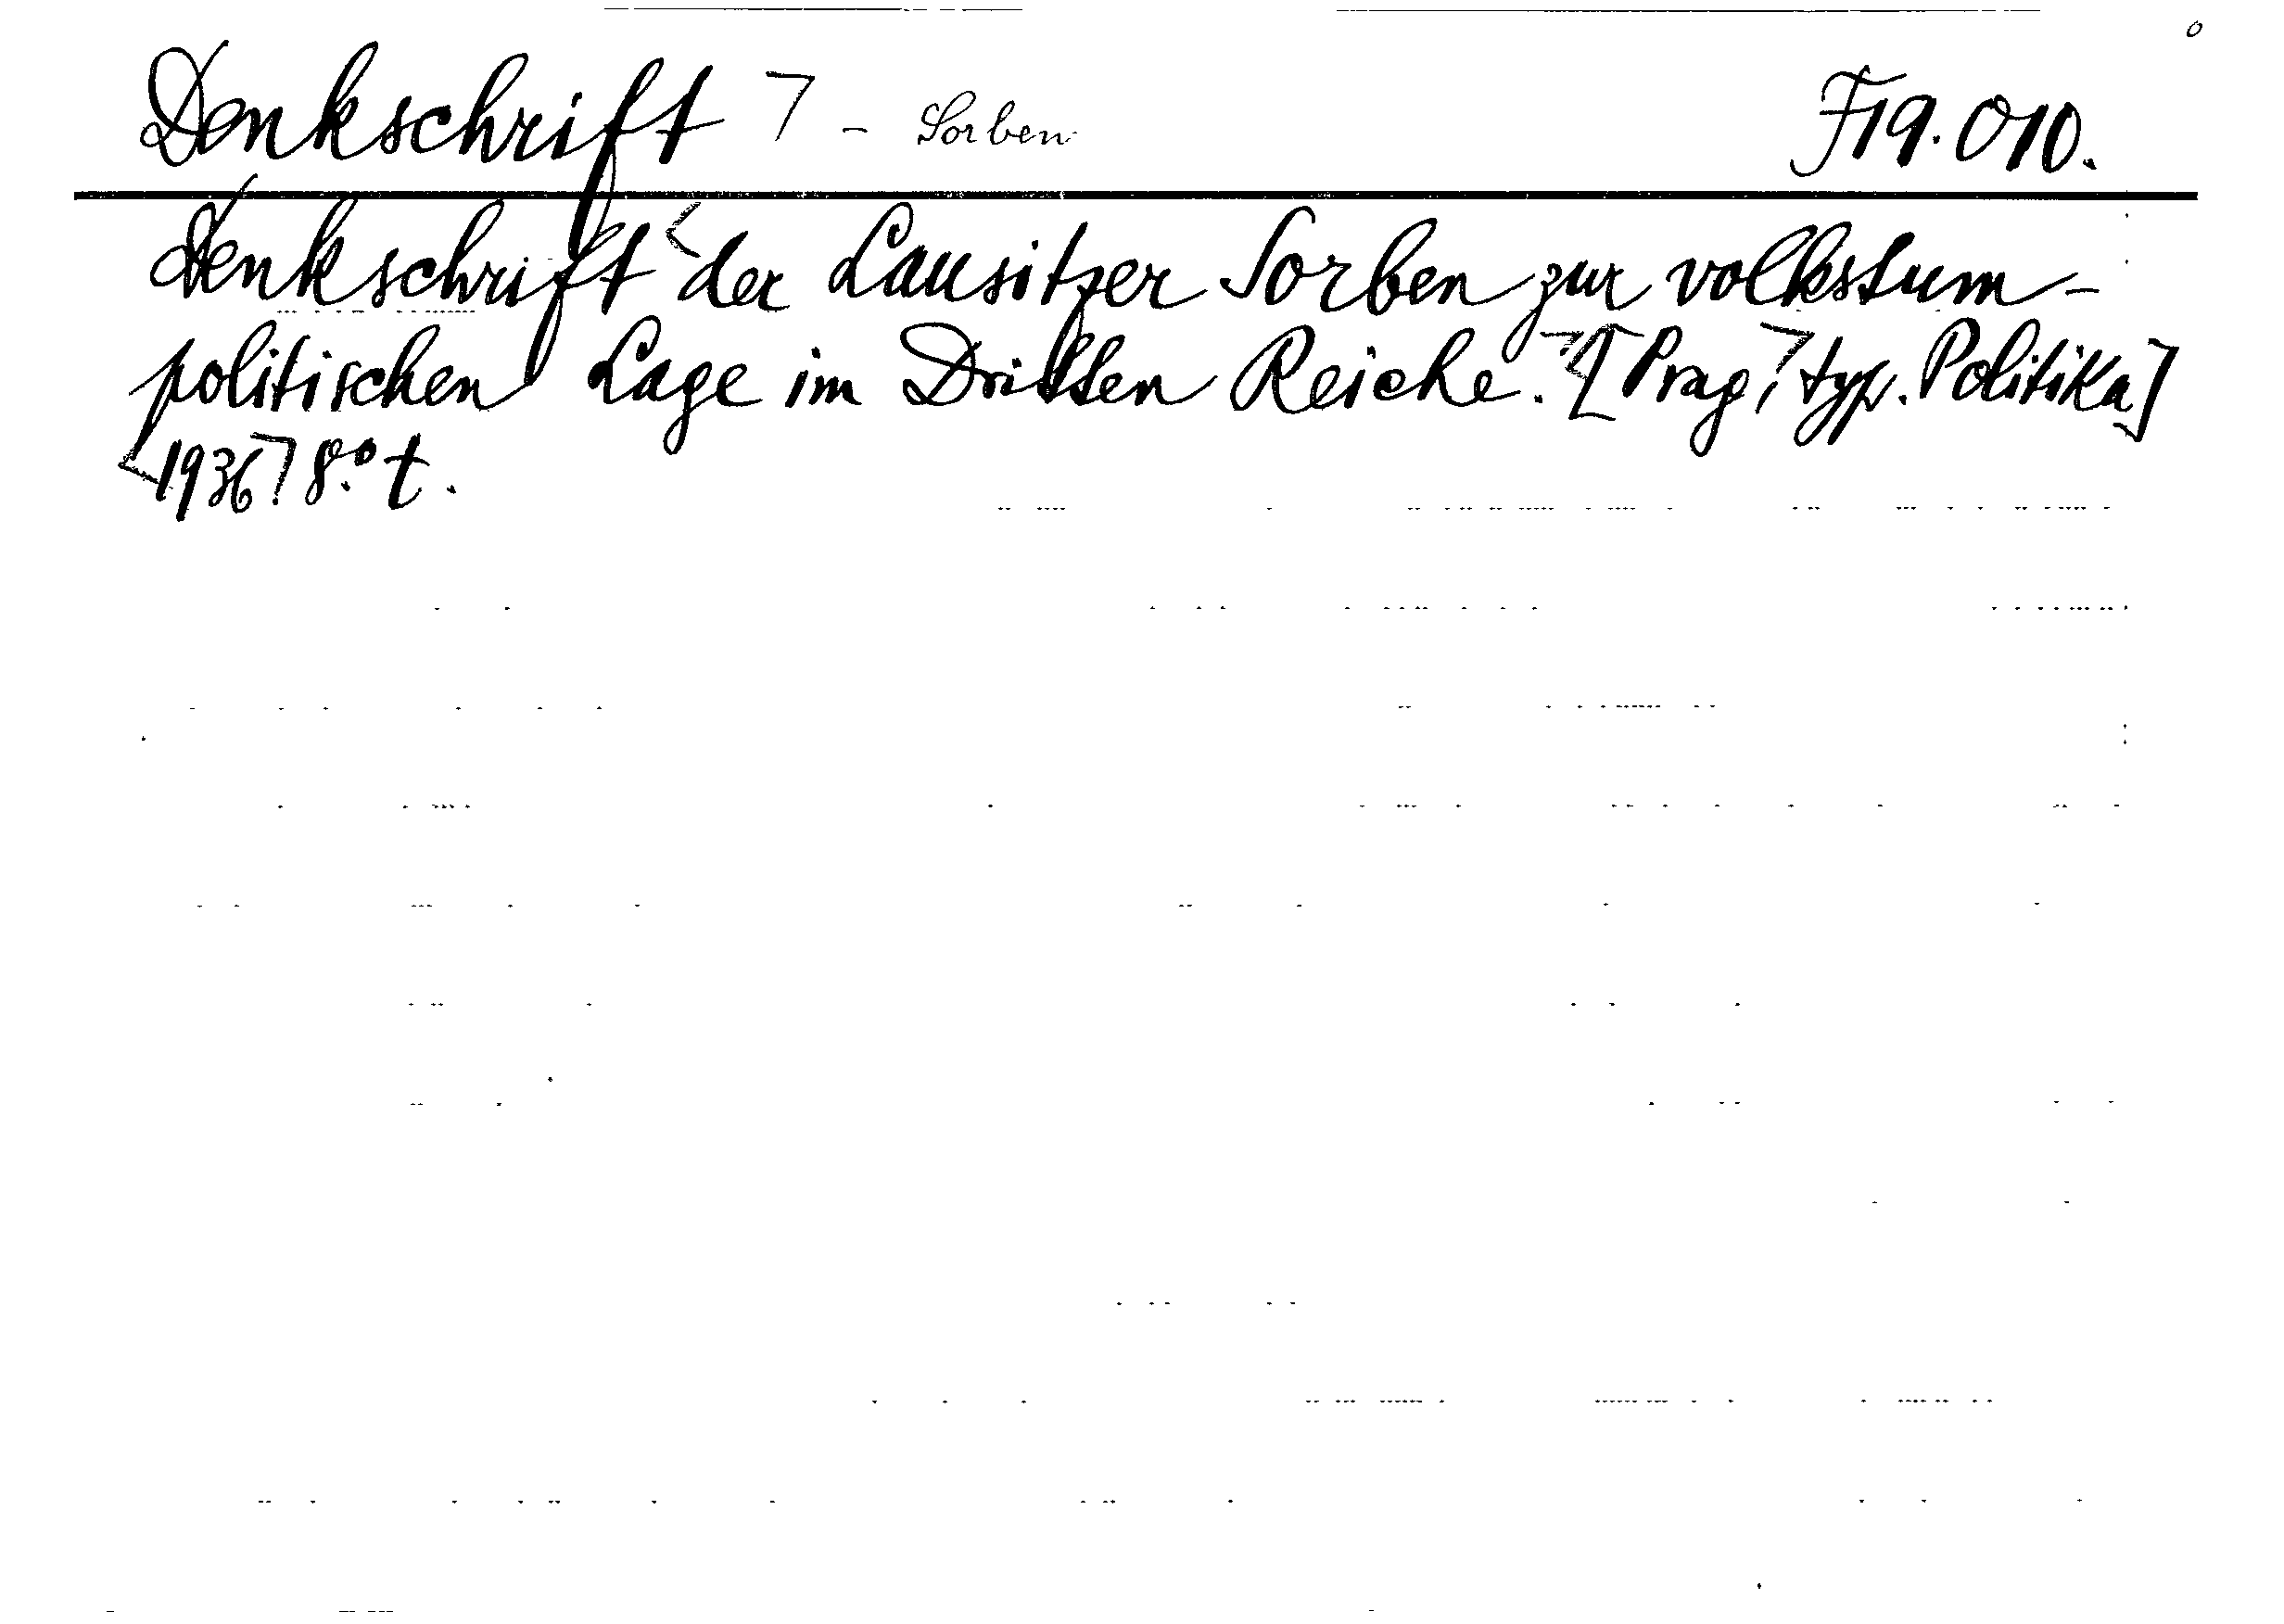 Denkschrift ⌉ - Sorben F19.010.
Denkschrift <der Lausitzer Sorben zur volkstum-
politischen Lage im Dritten Reiche.⌉ <[Prag,⌉ typ. Politika]
<1936⌉ 8.° t.